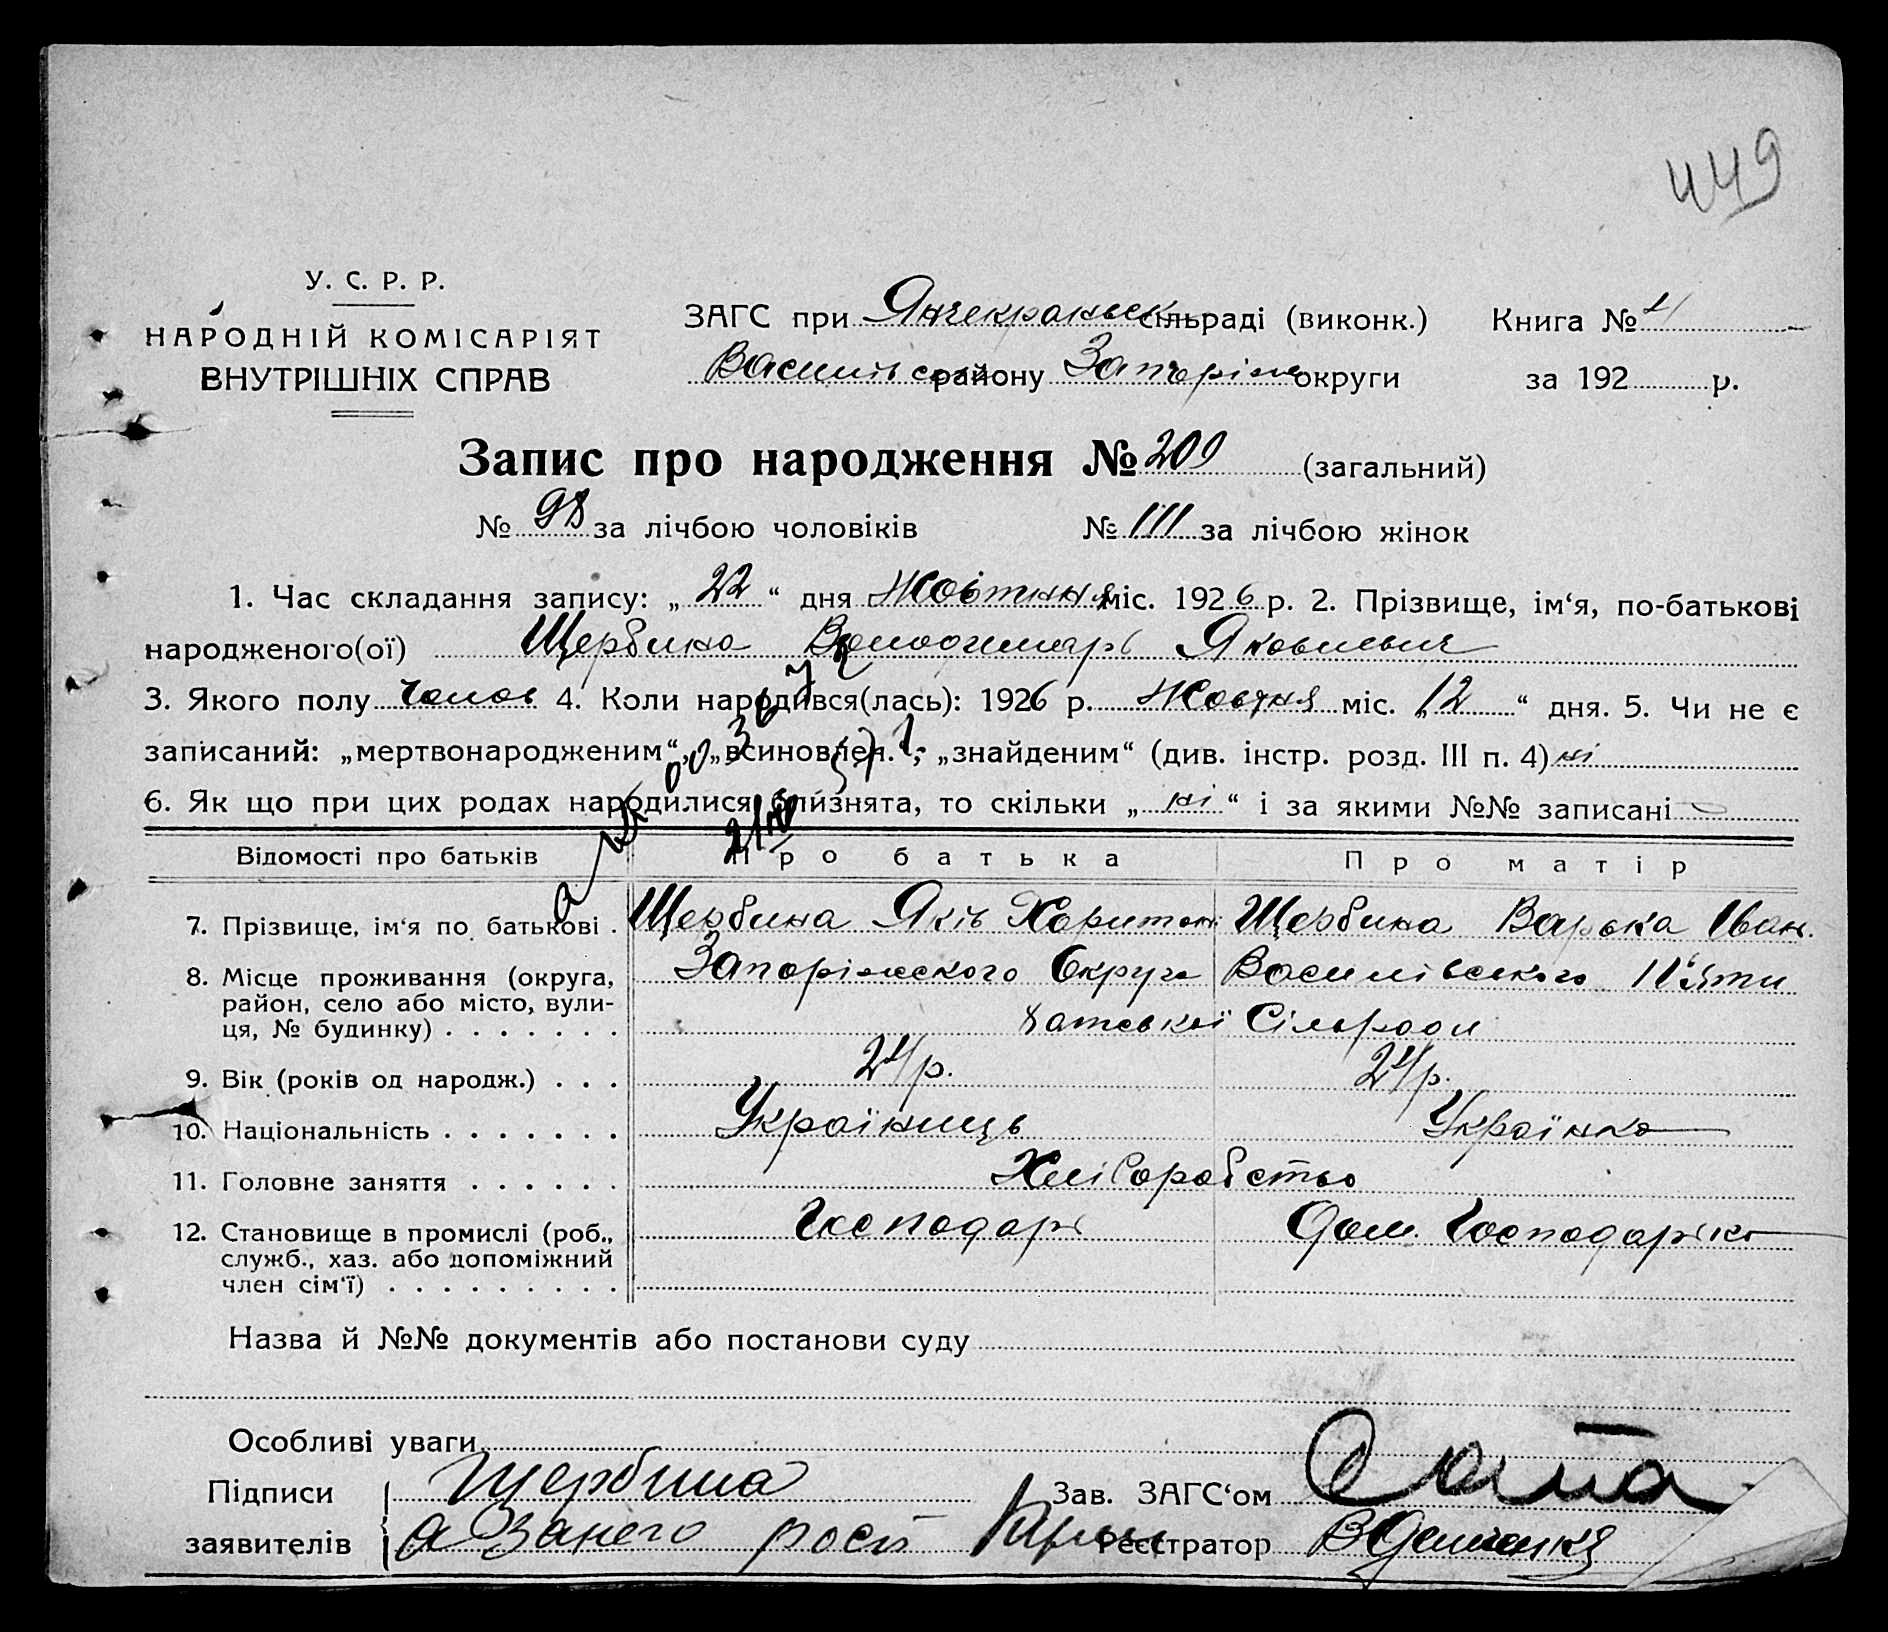 449
У. С. Р. Р.
НАРОДНІЙ КОМІСАРІЯТ
ВНУТРІШНІХ СПРАВ
ЗАГС при Янчекраньск сільраді (виконк.) Книга № 4
Васильевск району Запоріж округи за 192 р.
Запис про народження № 209 (загальний)
№ 98 за лічбою чоловіків № 111 за лічбою жінок
1. Час складання запису: „ 22 “ дня Жовтня міс. 1926 р. 2. Прізвище, ім‘я, по-батькові
народженого(ої) Щербина Володимарь Яковлевич
3. Якого полу Чолов 4. Коли народився(лась): 1926 р. Жовтня міс. „12“ дня. 5. Чи не є
записаний: „мертвонародженим“, „всиновлен.“, „знайденим“ (див. інстр. розд. III п. 4) ні
6. Як що при цих родах народилися близнята, то скільки „ ні “ і за якими №№ записані –
Відомості про батьків Про батька Про матір
7. Прізвище, ім‘я по батькові . Щербина Яків Харитон Щербина Варька Іван.
8. Місце проживання (округа, Запоріжського Округа Василівського П'яти
район, село або місто, вули-
ця, № будинку) . . . . . . . хатської Сільради
9. Вік (років од народж.) . . . 24 р. 24 р.
10. Національність . . . . . . . Україниць Українка
11. Головне заняття . . . . . . Хліборобство
12. Становище в промислі (роб., Господарь Дом. Господарка
служб., хаз. або допоміжний
член сім‘ї) . . . . . . . . .
Назва й №№ документів або постанови суду
Особливі уваги
Підписи Щербина Зав. ЗАГС‘ом
заявителів а Занего росп Реєстратор